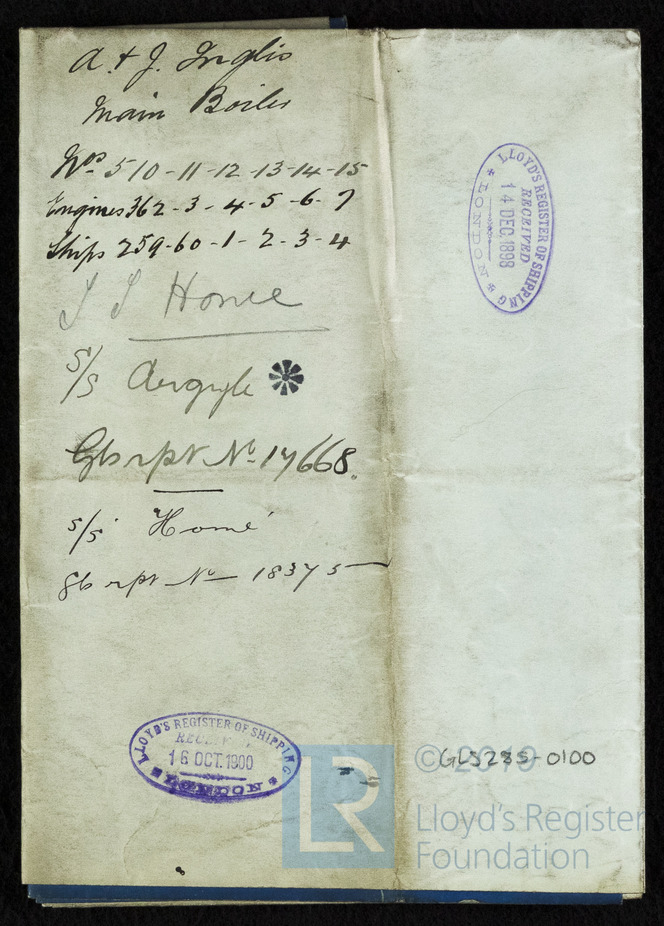 A. & J. Inglis
Main Boiler
Nos 510-11-12-13-14-15
Engines 362-3-4-5-6-7
Ships 259-60-1-2-3-4
S S Home
S/S Argyle
Gls rpt No 17668.
s/s "Home"
Gls rpt No 18375
LLOYD'S REGISTER OF SHIPPING
RECEIVED
14 DEC. 1898
LONDON
LLOYD'S REGISTER OF SHIPPING
16 OCT. 1900
LONDON
GLS285-0100
© 2019
LR
Lloyd's Register
Foundation